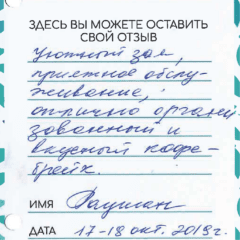 ЗДЕСЬ ВЫ МОЖЕТЕ ОСТАВИТЬ
СВОЙ ОТЗЫВ
Уютный зал,
приятное обслу-
живание,
отлично органи
зованный и
вкусный кофе-
брейк.
ИМЯ Раушан
ДАТА 17-18 окт. 2019г.